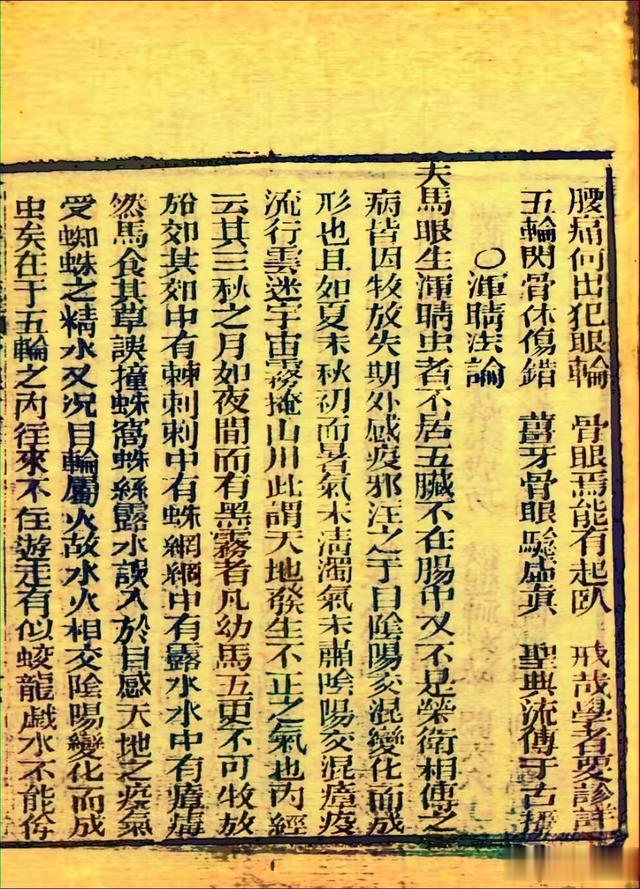 腰痛何出犯眼輪 骨眼焉能有起臥 戒哉學者要診詳
五輪閃骨休傷錯 薑牙骨眼驗虛眞 聖典流傳于古播
○渾睛法論
夫馬眼生渾睛虫者不居五臟不在腸中又不是榮衛相傳之
病皆因牧放失期外感疫邪注之于目陰陽交混變化而成
形也且如夏末秋初而暑氣未清濁氣未肅陰陽交混瘴疫
流行雲迷宇宙霧掩山川此謂天地發生不正之氣也內經
云其三秋之月如夜間而有黑霧者凡幼馬五更不可牧放
於郊其郊中有棘刺刺中有蛛網網中有露水水中有瘴毒
然馬食其草誤撞蛛窩蛛絲露水誤入於目感天地之疫氣
受蜘蛛之精水又況目輪屬火故水火相交陰陽變化而成
虫矣在于五輪之内往來不住遊走有似蛟龍戲水不能傷